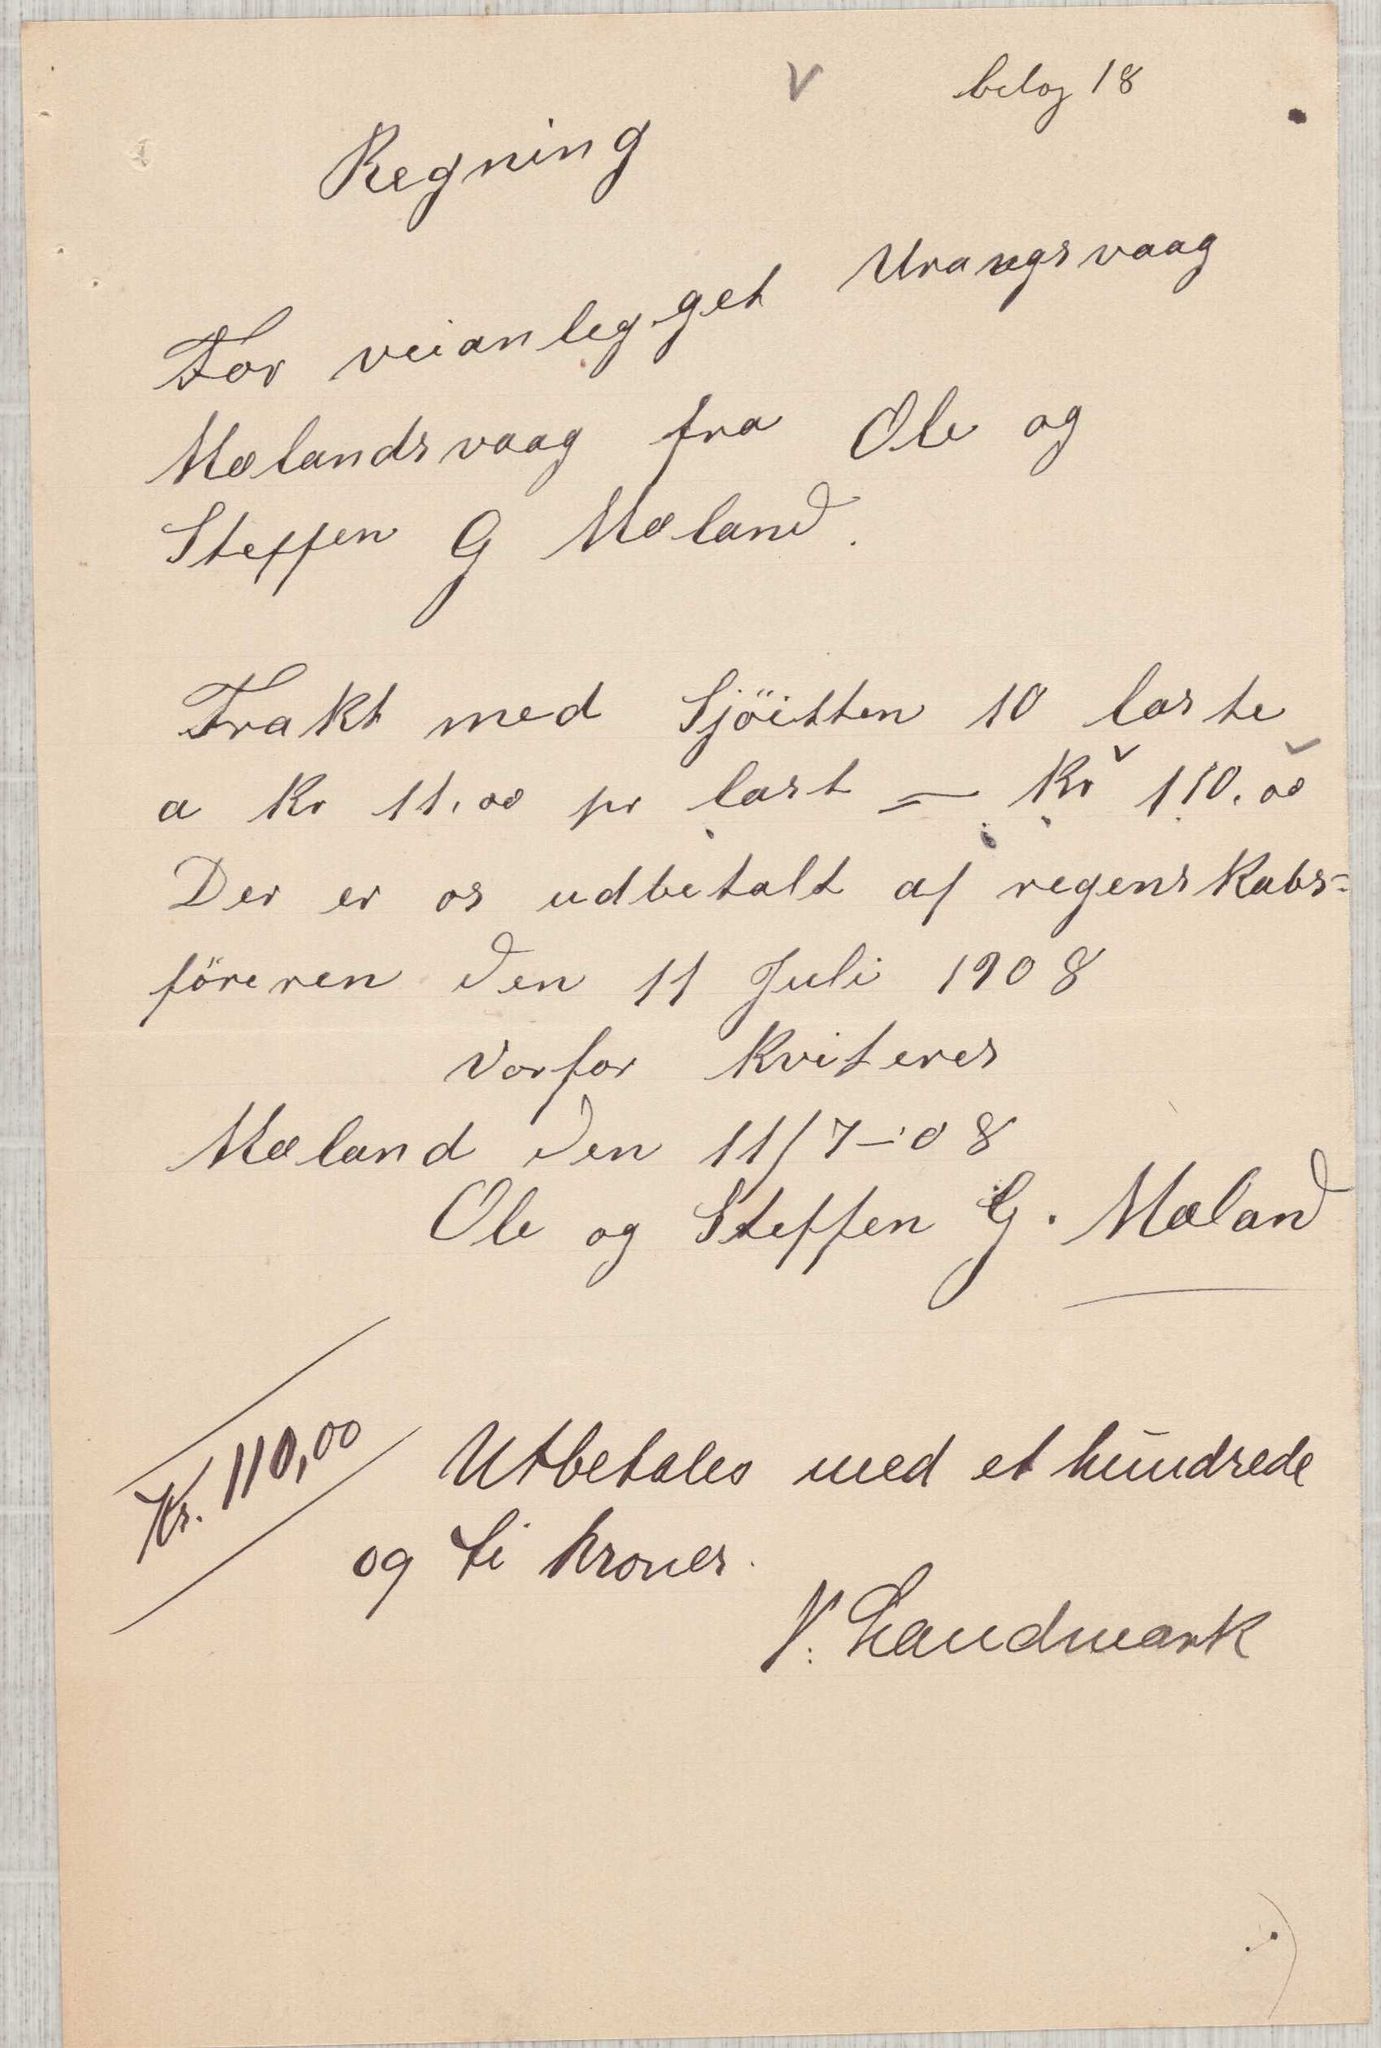 V
belag 18
Regning
For veianlegget Urangsvaag
Mælandsvaag fra Ole og
Steffen G Mæland.
Frakt med Sjöitten 10 laste
a Kr 11.00 pr last = Kr 110.00
Der er os udbetalt af regenskabs=
föreren den 11 Juli 1908
vorfor kviteres
Mæland den 11/7-08
Ole og Steffen G. Mæland
Kr. 110,00
Utbetales med et hundrede
og ti kroner.
N. Landmark